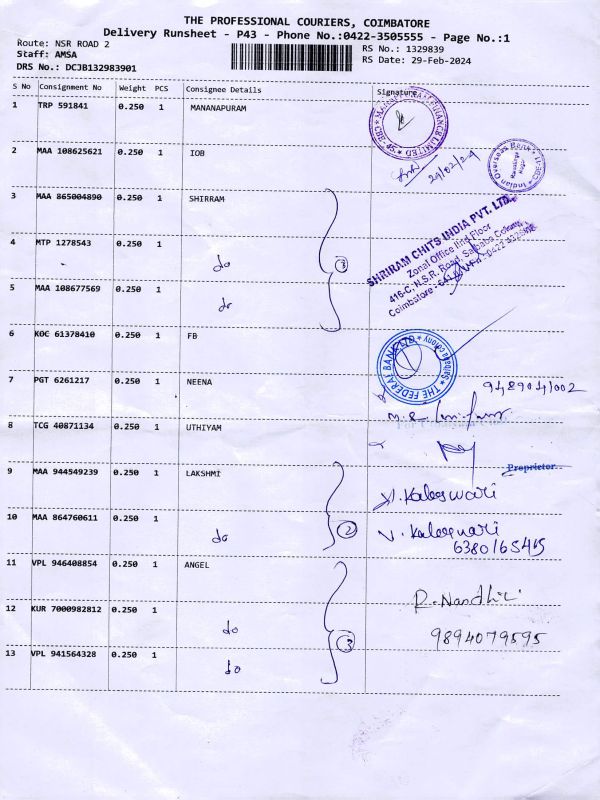 THE PROFESSIONAL COURIERS, COIMBATORE
Delivery Runsheet - P43 - Phone No.:0422-3505555 - Page No.:1
Route: NSR ROAD 2
Staff: AMSA
DRS No.: DCJB132983901
RS No.: 1329839
RS Date: 29-Feb-2024
S No Consignment No Weight PCS Consignee Details Signature
1 TRP 591841 0.250 1 MANANAPURAM
2 MAA 108625621 0.250 1 IOB
Indian Overseas Bank
3 MAA 865004890 0.250 1 SHRIRAM
SHRIRAM CHITS INDIA PVT. LTD.
Zonal Office IInd Floor
416-C, N.S.R. Road, Saibaba Colony
4 MTP 1278543 0.250 1 do
1
5 MAA 108677569 0.250 1 do
6 KOC 61378410 0.250 1 FB
THE FEDERAL BANK LTD
7 PGT 6261217 0.250 1 NEENA
9489041002
8 TCG 40871134 0.250 1 UTHIYAM
Proprietor
9 MAA 944549239 0.250 1 LAKSHMI
V. Kaleswari
10 MAA 864760611 0.250 1 do 2
V. Kaleswari
6380165415
11 VPL 946408854 0.250 1 ANGEL
R. Nandhini
12 KUR 7000982812 0.250 1 do 3
9894079595
13 VPL 941564328 0.250 1 do